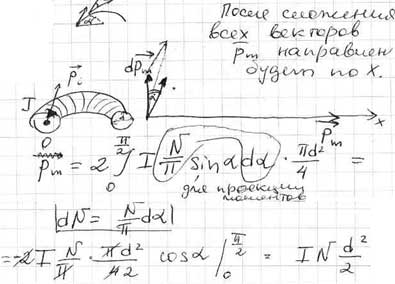 После сложения
всех векторов
P̄m направлен
будет по X.
dP̄m
P̄i
α
I
O
x
P̄m
P̄m = 2 ∫₀^{π/2} I N/π sinα dα · πd²/4 =
для проекции
моментов
|dN = N/π dα|
= -2 I N/π · πd²/42 cosα |₀^{π/2} = IN d²/2